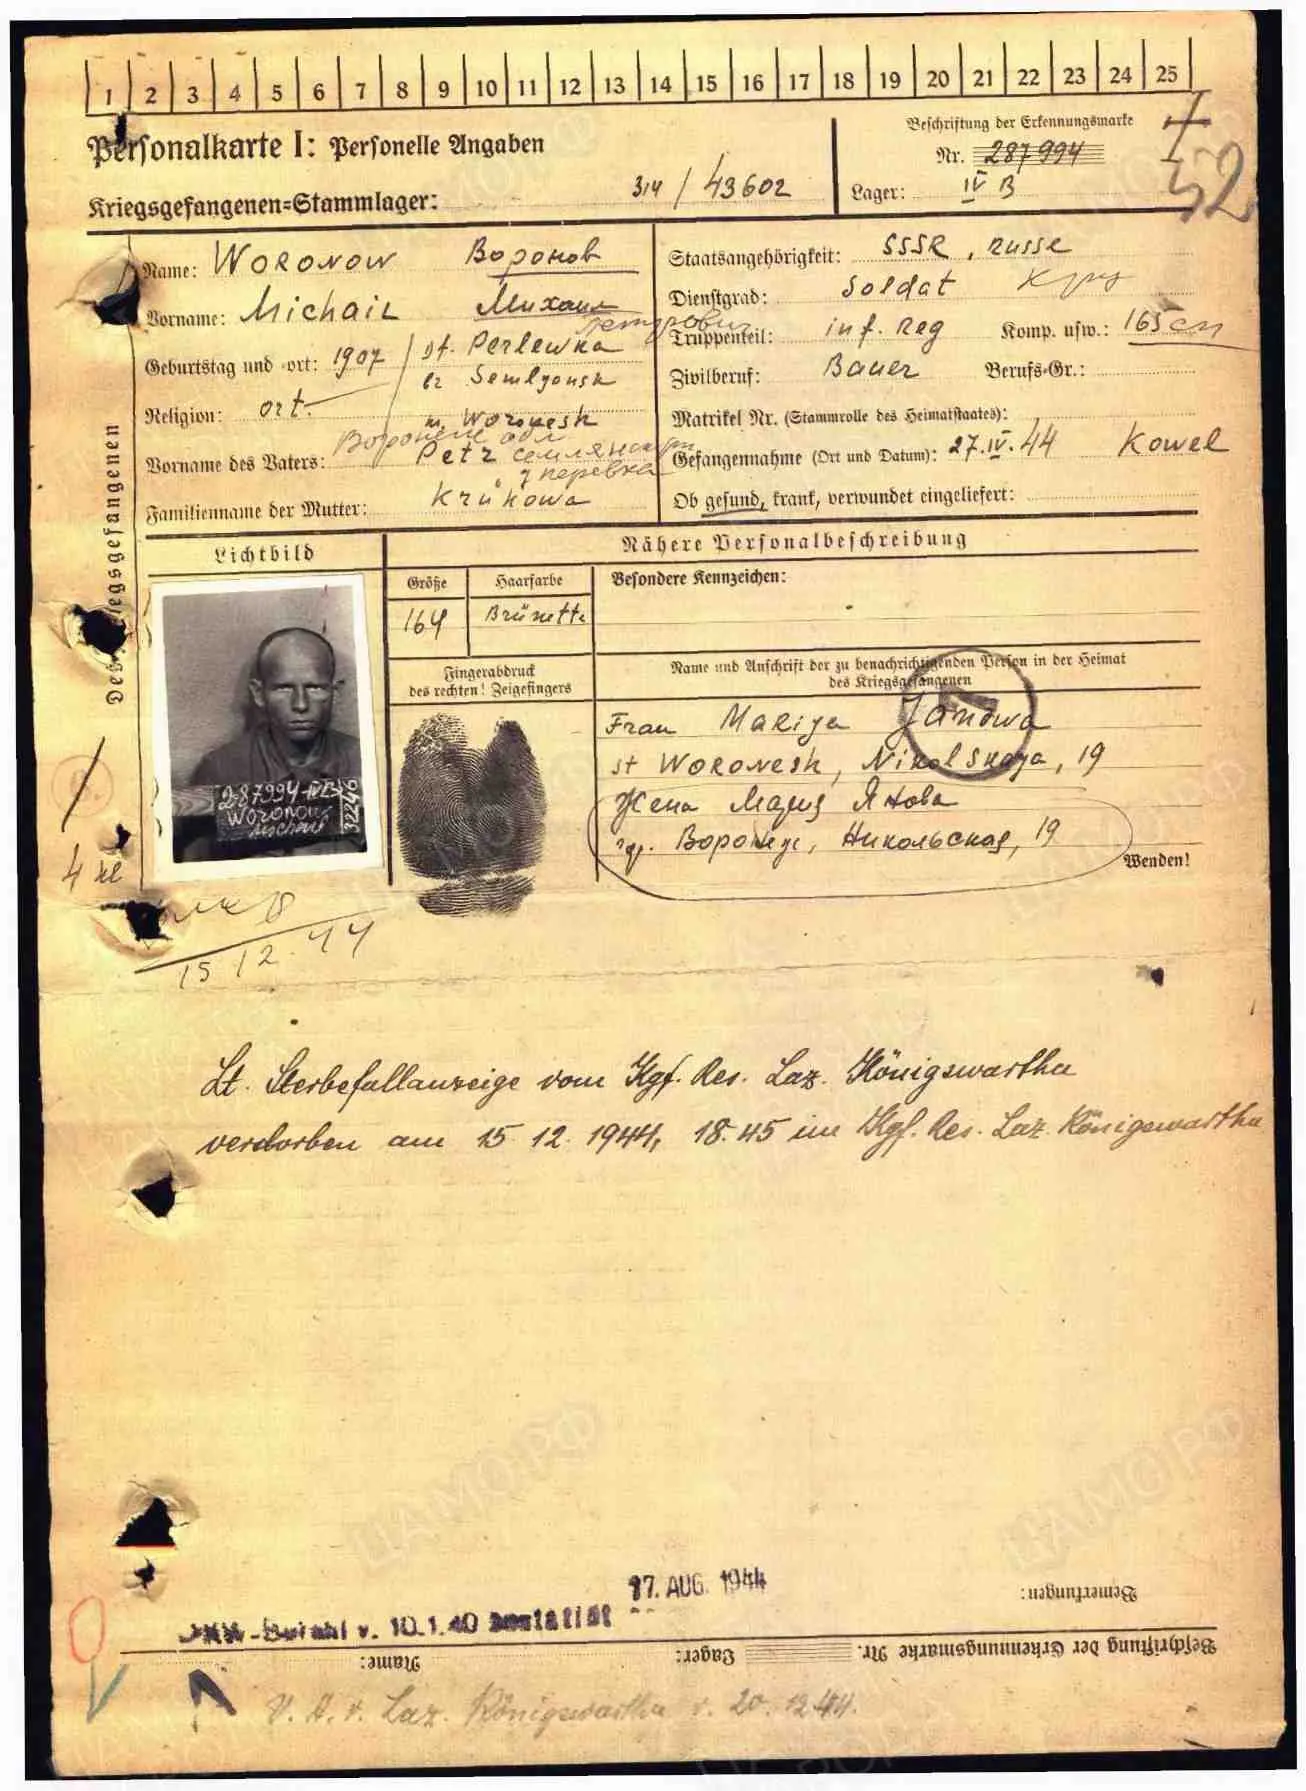 1 2 3 4 5 6 7 8 9 10 11 12 13 14 15 16 17 18 19 20 21 22 23 24 25
Personalkarte I: Personelle Angaben
Beschriftung der Erkennungsmarke
Nr. 287994
Kriegsgefangenen=Stammlager: 314 / 43602
Lager: IV B
52
Name: Woronow Воронов
Vorname: Michail Михаил
Петрович
Geburtstag und -ort: 1907 / st. Perlewka
br Semlyansk
Religion: ort.
m. Woronesh
Воронеж обл
Vorname des Vaters: Petr
Familienname der Mutter: Krükowa
Staatsangehörigkeit: SSSR, russe
Dienstgrad: Soldat
Truppenteil: inf. Reg Komp. usw.: 165 сп
Zivilberuf: Bauer Berufs-Gr.:
Matrikel Nr. (Stammrolle des Heimatstaates):
Gefangennahme (Ort und Datum): 27.IV.44 Kowel
Ob gesund, krank, verwundet eingeliefert:
Des Kriegsgefangenen
Lichtbild
Nähere Personalbeschreibung
Größe Haarfarbe Besondere Kennzeichen:
164 Brünette
287994 IVB
Woronow
Michail
32246
Fingerabdruck
des rechten! Zeigefingers
Name und Anschrift der zu benachrichtigenden Person in der Heimat
des Kriegsgefangenen
Frau Mariya Janowa
st Woronesh, Nikolskaya, 19
Жена Мария Янова
гор. Воронеж, Никольская, 19
Wenden!
4 kl
15.12.44
Lt. Sterbefallanzeige vom Kgf. Res. Laz. Königswartha
verstorben am 15.12.1944, 18.45 im Kgf. Res. Laz. Königswartha
17. AUG. 1944
Bemerkungen:
v. 10.1.40
Beschriftung der Erkennungsmarke Nr. Lager: Name:
V. A. v. Laz. Königswartha v. 20.12.44.
ЦАМО РФ